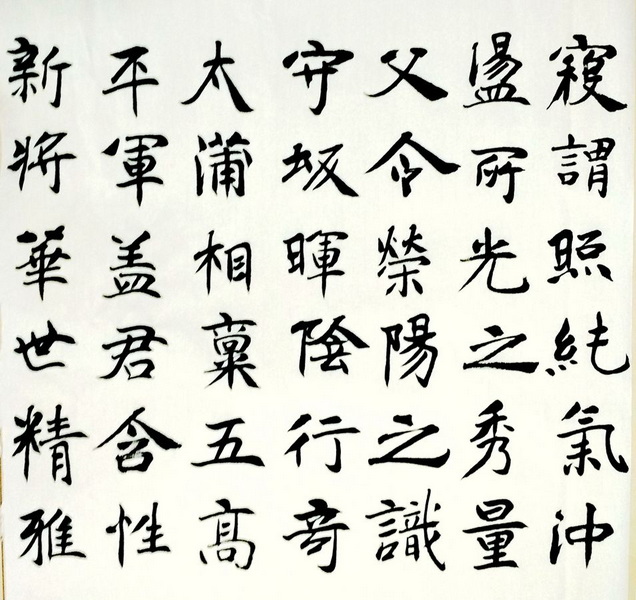 新平太守父盪寇
將軍蒲坂令所謂
華盖相暉榮光照
世君稟陰陽之純
精含五行之秀氣
雅性高奇識量沖